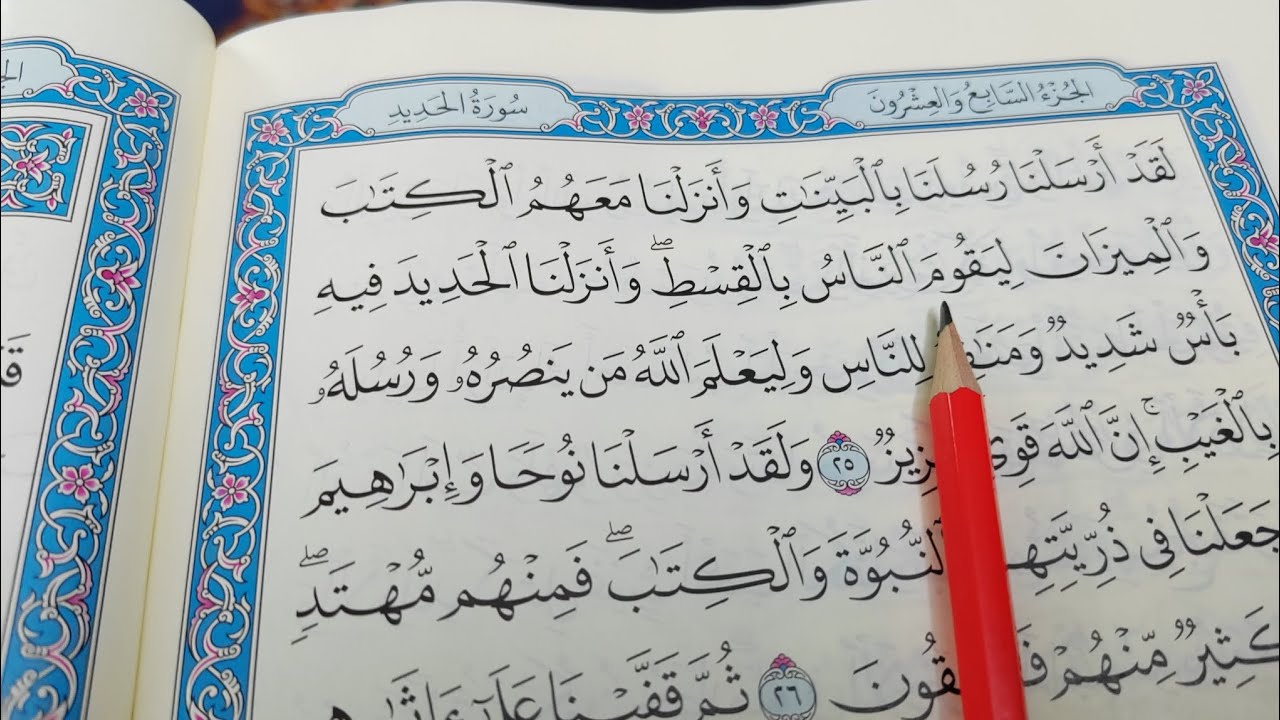 ٱلْجُزْءُ السَّابِعُ وَالْعِشْرُونَ
سُورَةُ الْحَدِيدِ
لَقَدْ أَرْسَلْنَا رُسُلَنَا بِٱلْبَيِّنَٰتِ وَأَنزَلْنَا مَعَهُمُ ٱلْكِتَٰبَ
وَٱلْمِيزَانَ لِيَقُومَ ٱلنَّاسُ بِٱلْقِسْطِۖ وَأَنزَلْنَا ٱلْحَدِيدَ فِيهِ
بَأْسٌ شَدِيدٌ لِلنَّاسِ وَلِيَعْلَمَ ٱللَّهُ مَن يَنصُرُهُۥ وَرُسُلَهُۥ
بِٱلْغَيْبِۚ إِنَّ ٱللَّهَ ٢٥ وَلَقَدْ أَرْسَلْنَا نُوحًا وَإِبْرَٰهِيمَ
جَعَلْنَا فِى ٱلنُّبُوَّةَ وَٱلْكِتَٰبَۖ فَمِنْهُم مُّهْتَدٍۖ
كَثِيرٌ مِّنْهُمْ ٢٦ ثُمَّ قَفَّيْنَا عَلَىٰٓ